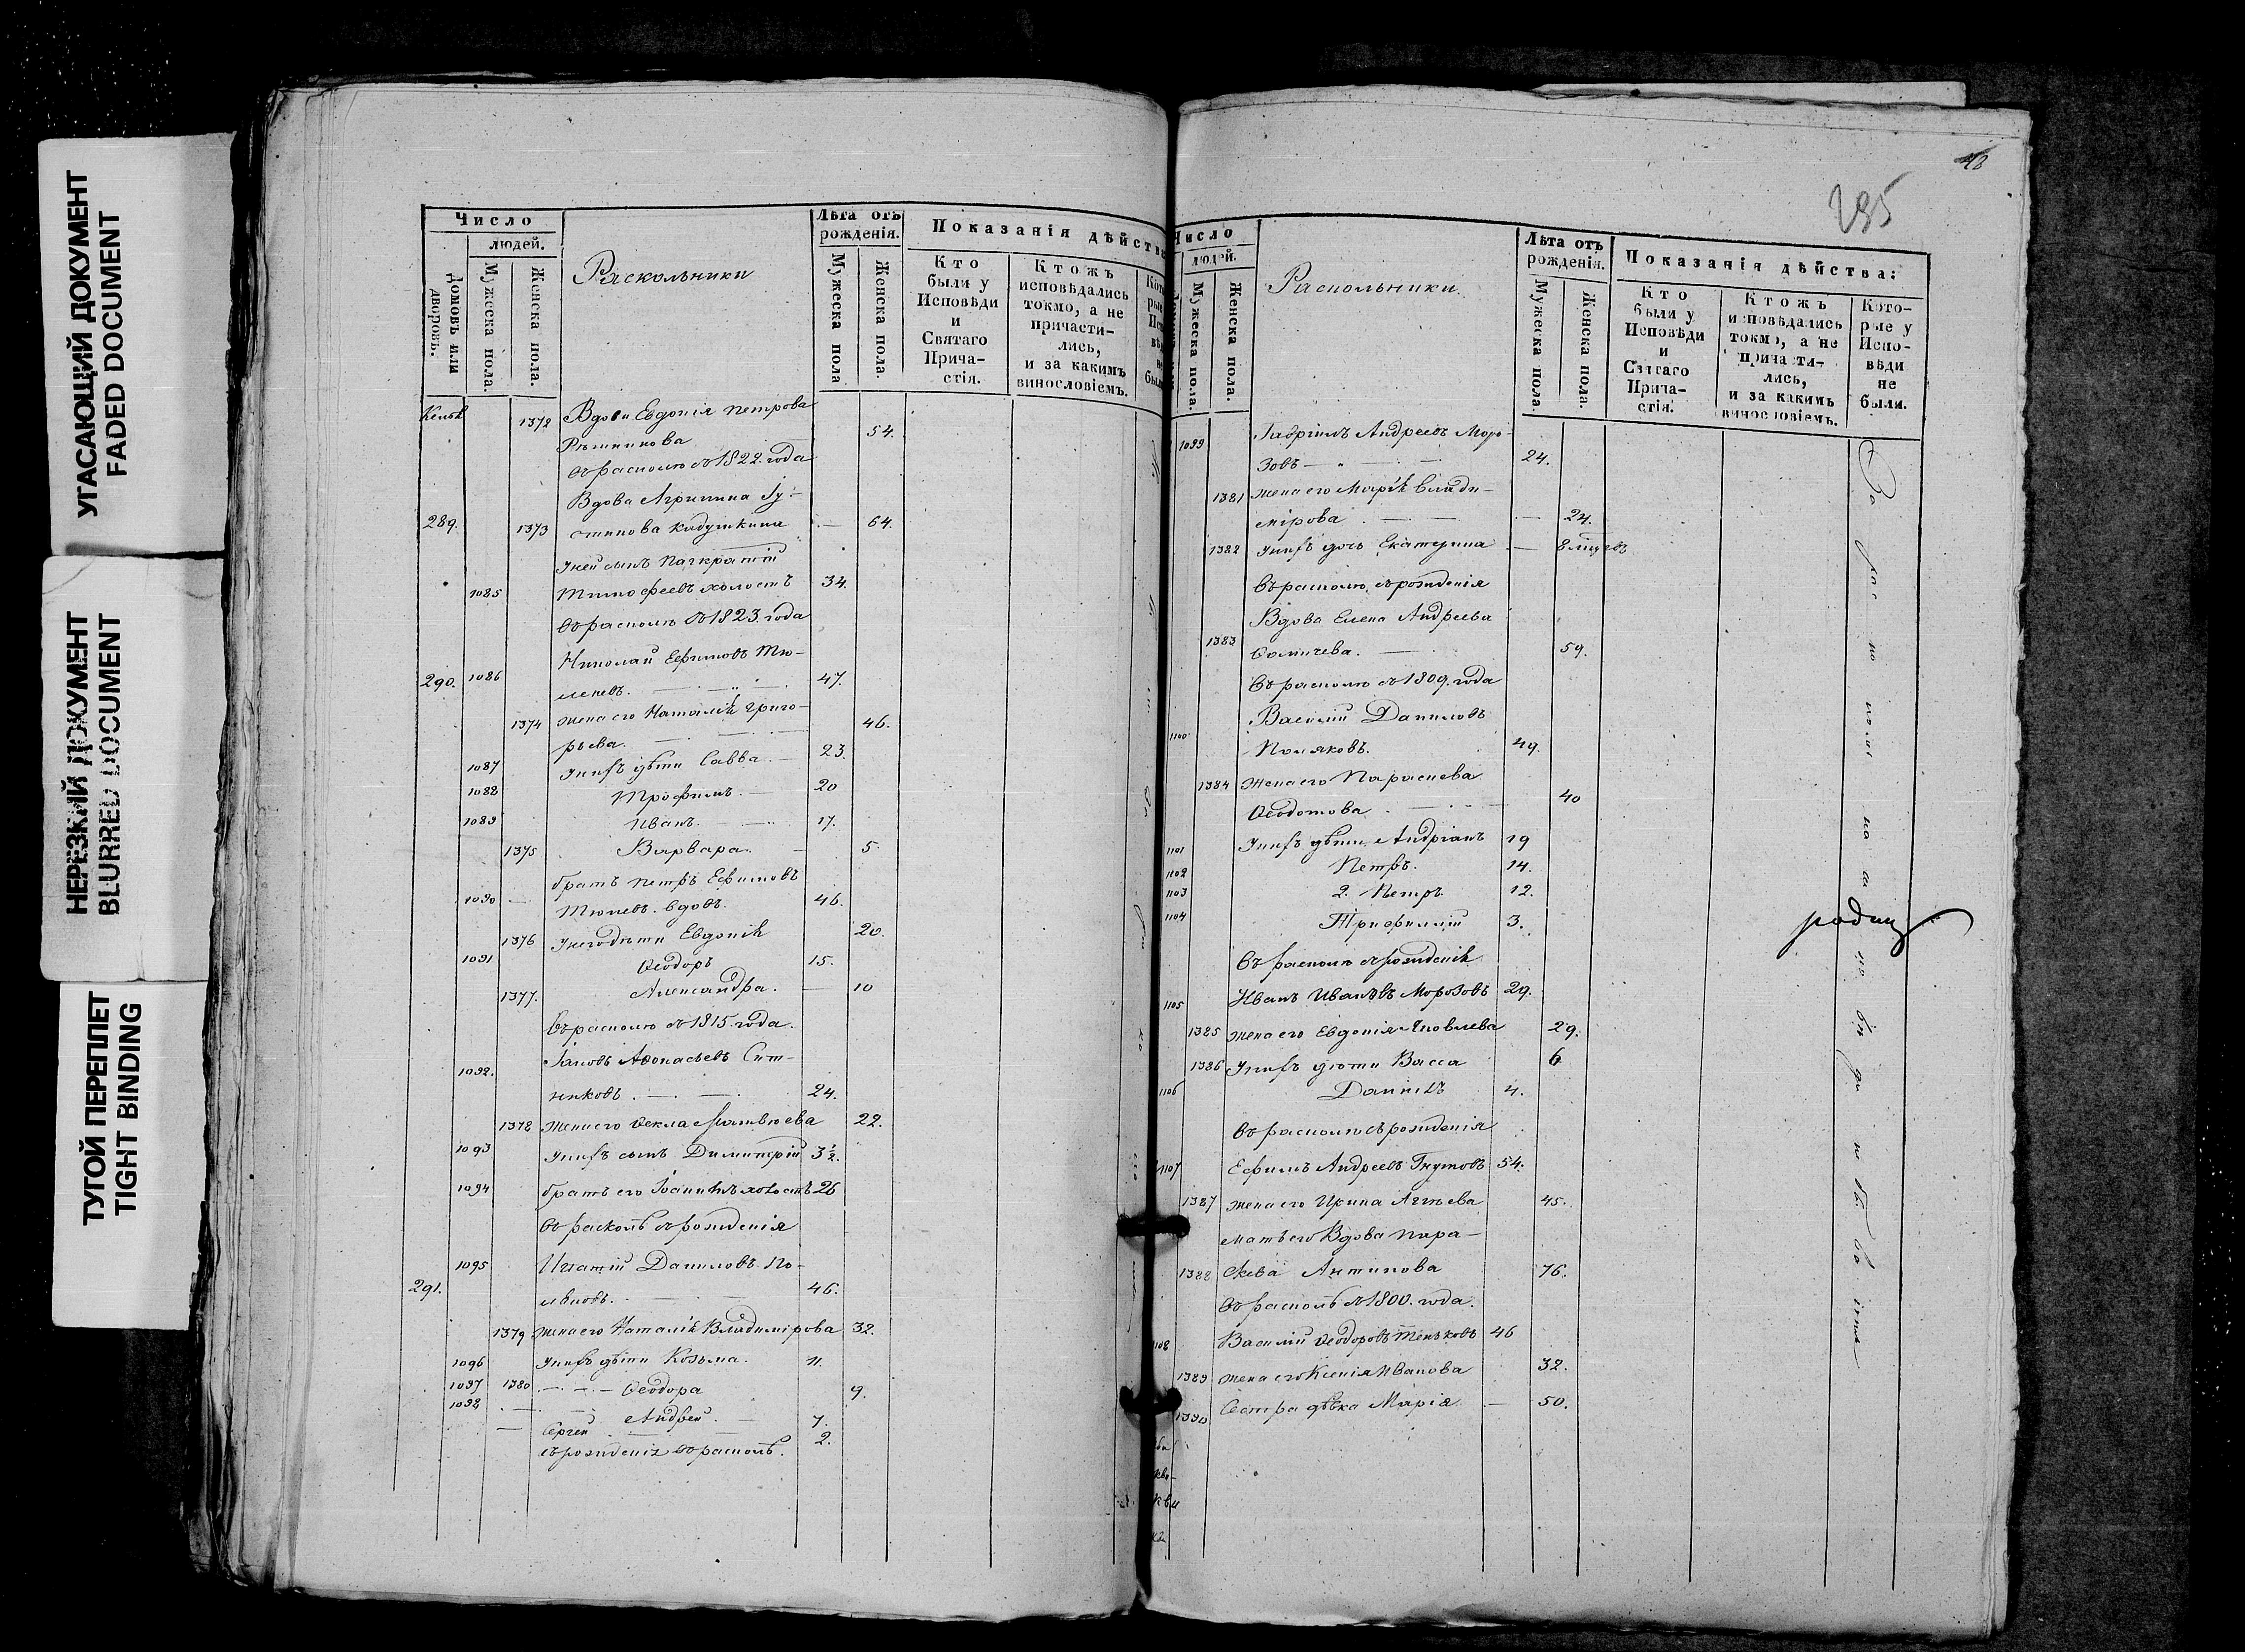 УГАСАЮЩИЙ ДОКУМЕНТ
FADED DOCUMENT
НЕРЕЗКИЙ ДОКУМЕНТ
BLURRED DOCUMENT
ТУГОЙ ПЕРЕПЛЕТ
TIGHT BINDING
Число
людей.
Домовъ или дворовъ.
Мужеска пола.
Женска пола.
Раскольники
Лѣта отъ рожденія.
Мужеска пола
Женска пола.
Показанія дѣйства
Кто были у Исповѣди и Святаго Причастія.
Ктожъ исповѣдались токмо, а не причастились, и за какимъ винословіемъ.
Келья 1372 Вдова Евдокія Петрова
54.
въ расколѣ съ 1822. года
Вдова Агрипина Iу-
289. 1373 стинова Кадушкина — 64.
У ней сынъ Панкратій
1085 Тимофеевъ холостъ 34.
въ расколѣ съ 1823. года
Николай Ефимовъ Тю-
290. 1086 47.
1374 жена его Наталія Григо-
рьева. 46.
1087 У нихъ дѣти Савва. — 23.
1088 Трофимъ. — 20
1089 Иванъ. 17.
1375 Варвара. — 5.
братъ Петръ Ефимовъ
1090 вдовъ. 46.
1376 У него дѣти Евдокія 20.
1091 Ѳеодоръ 15.
1377. Александра. — 10
въ расколѣ съ 1815. года.
1092. Іаковъ Аѳонасьевъ Сит-
никовъ. 24.
1378 жена его Ѳекла Матвѣева 22.
1093 У нихъ сынъ Димитрій 3½.
1094 братъ его Іоанникъ холостъ 26
въ расколѣ съ рожденія
1095 Игнатій Даниловъ По-
291. ляковъ. 46.
1379 жена его Наталія Владимірова 32.
1096 У нихъ дѣти Козьма. 11.
1097 1380 — Ѳеодора 9.
1098 Андрей. — 7.
Сергей. 2.
съ рожденія въ расколѣ.
48
285
Число
людей.
Мужеска пола.
Женска пола.
Раскольники
Лѣта отъ рожденія.
Мужеска пола.
Женска пола.
Показанія дѣйства:
Кто были у Исповѣди и Святаго Причастія.
Ктожъ исповѣдались токмо, а не причастились, и за какимъ винословіемъ.
Которые у Исповѣди не были.
1099 Гавріилъ Андреевъ Моро-
зовъ — 24.
1381 жена его Марія Влади-
мірова. — 24.
1382 У нихъ дочь Екатерина —
въ расколѣ съ рожденія
Вдова Елена Андреева
1383 59.
въ расколѣ съ 1809. года
Василій Даниловъ
1100 Поляковъ. 49.
1384 Жена его Параскева
Ѳеодотова. 40
1101 У нихъ дѣти Андріанъ 19
1102 Петръ. 14.
1103 2. Петръ 12.
1104 Трифиллій 3.
въ расколѣ съ рожденія
1105 Иванъ Ивановъ Морозовъ 29.
1385 жена его Евдокія Яковлева 29.
1386 У нихъ дѣти Васса 6
1106 Даніилъ 4.
въ расколѣ съ рожденія
1107 Ефимъ Андреевъ Гнутовъ 54.
1387 жена его Ирина Агѣева 45.
мать его Вдова Пара-
1388 скева Антипова 76.
въ расколѣ съ 1800. года.
1108 Василій Ѳеодоровъ Теньковъ 46
1389 жена его Ксенія Иванова 32.
1390 Сестра дѣвка Марія — 50.